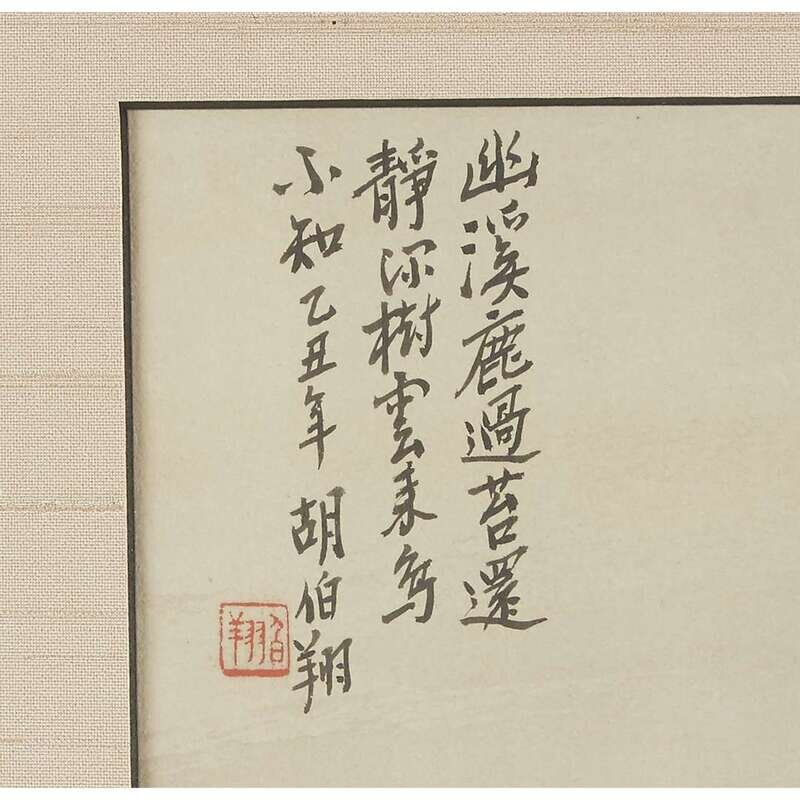 幽溪鹿過苔還
靜深樹雲来鳥
不知乙丑年 胡伯翔
伯翔